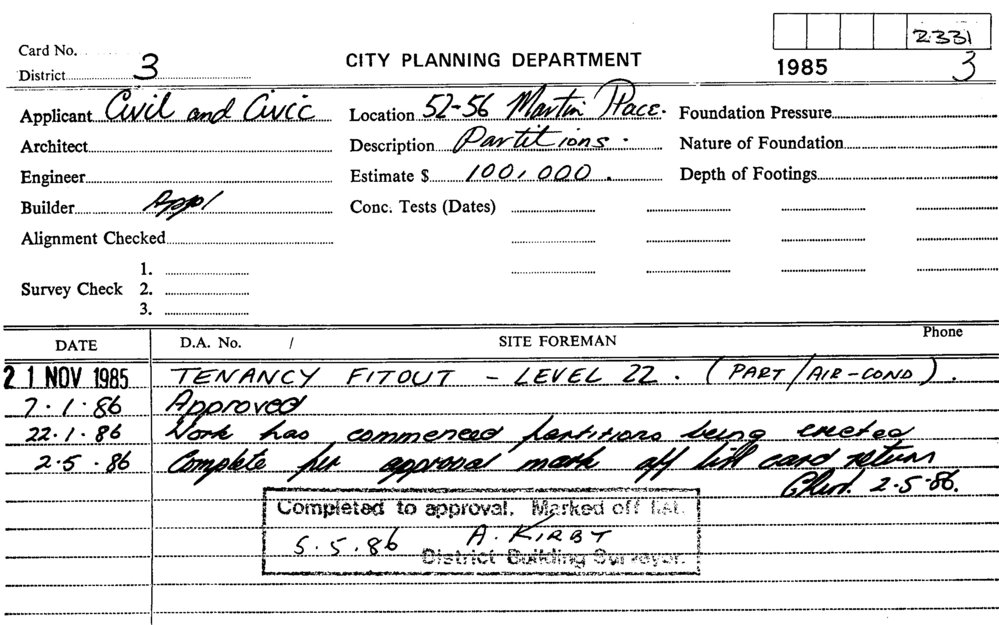 2331
Card No.
District 3
CITY PLANNING DEPARTMENT
1985 3
Applicant Civil and Civic
Location 52-56 Martin Place.
Foundation Pressure
Architect
Description Partitions.
Nature of Foundation
Engineer
Estimate $ 100,000.
Depth of Footings
Builder Appl
Conc. Tests (Dates)
Alignment Checked
Survey Check
1.
2.
3.
DATE D.A. No. / SITE FOREMAN Phone
21 NOV 1985 TENANCY FITOUT - LEVEL 22. (PART/AIR-COND).
7.1.86 Approved
22.1.86 Work has commenced partitions being erected
2.5.86 Complete per approval mark off list card return
2.5.86.
Completed to approval. Marked off list.
5.5.86 A. KIRBY
District Building Surveyor.